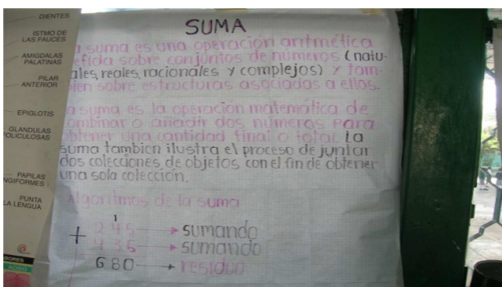 DIENTES
ISTMO DE
LAS FAUCES
AMIGDALAS
PALATINAS
PILAR
ANTERIOR
EPIGLOTIS
GLANDULAS
PAPILAS
PUNTA
LA LENGUA
SUMA
a suma es una operación aritmética
efida sobre conjuntos de numeros (natu-
ales, reales, racionales y complejos) y tam-
ien sobre estructuras asociadas a ellos.
a suma es la operación matemática de
ombinar o añadir dos números para
obtener una cantidad final o total. La
suma tambien ilustra el proceso de juntar
dos colecciones de objetos con el fin de obtener
una sola colección.
Algoritmos de la suma
1
+ 245 → sumando
435 → sumando
680 → residuo